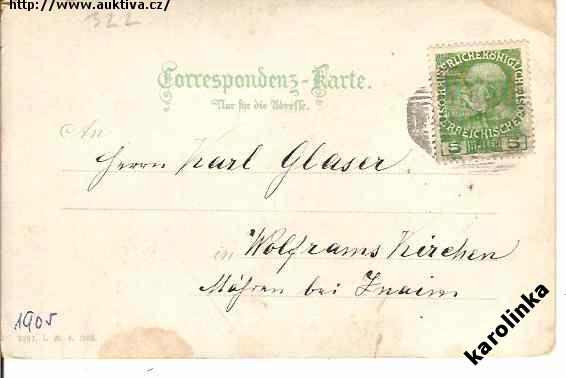 http://www.auktiva.cz/
322
Correspondenz-Karte.
Nur für die Adresse.
An
Herrn Karl Glaser
in Wolframs Kirchen
Mähren bei Znaim
1905
5 5
karolinka